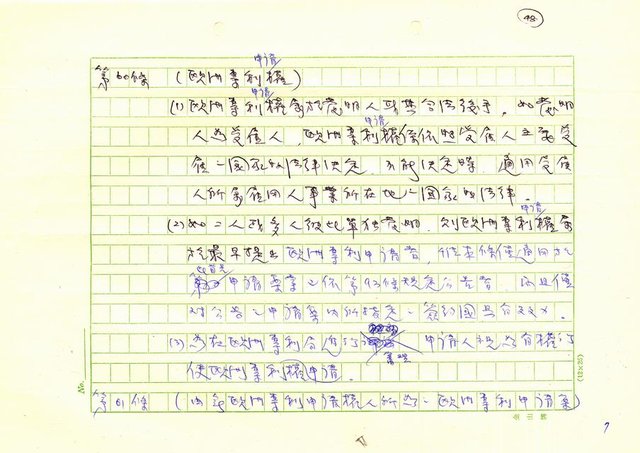 48
申請
第60條 (歐洲專利權)
申請
(1) 歐洲專利權屬於發明人或其合法後手。如發明
申請
人為受僱人,歐洲專利權係依照受僱人主要受
僱之國家的法律決定,不能決定時,適用受僱
人所屬僱用人事業所在地之國家的法律。
申請
(2) 如二人或多人彼此單獨發明,則歐洲專利權屬
於最早提出歐洲專利申請者,但本條僅適用於
申請案業已依第93條規定公告者,而且僅
對公告之申請案內所指定之簽約國具有效力。
(3) 為在歐洲專利局進行 申請人視為有權行
使歐洲專利權申請。
第61條 (由無歐洲專利申請權人所為之歐洲專利申請案)
No.
(12×25)
7